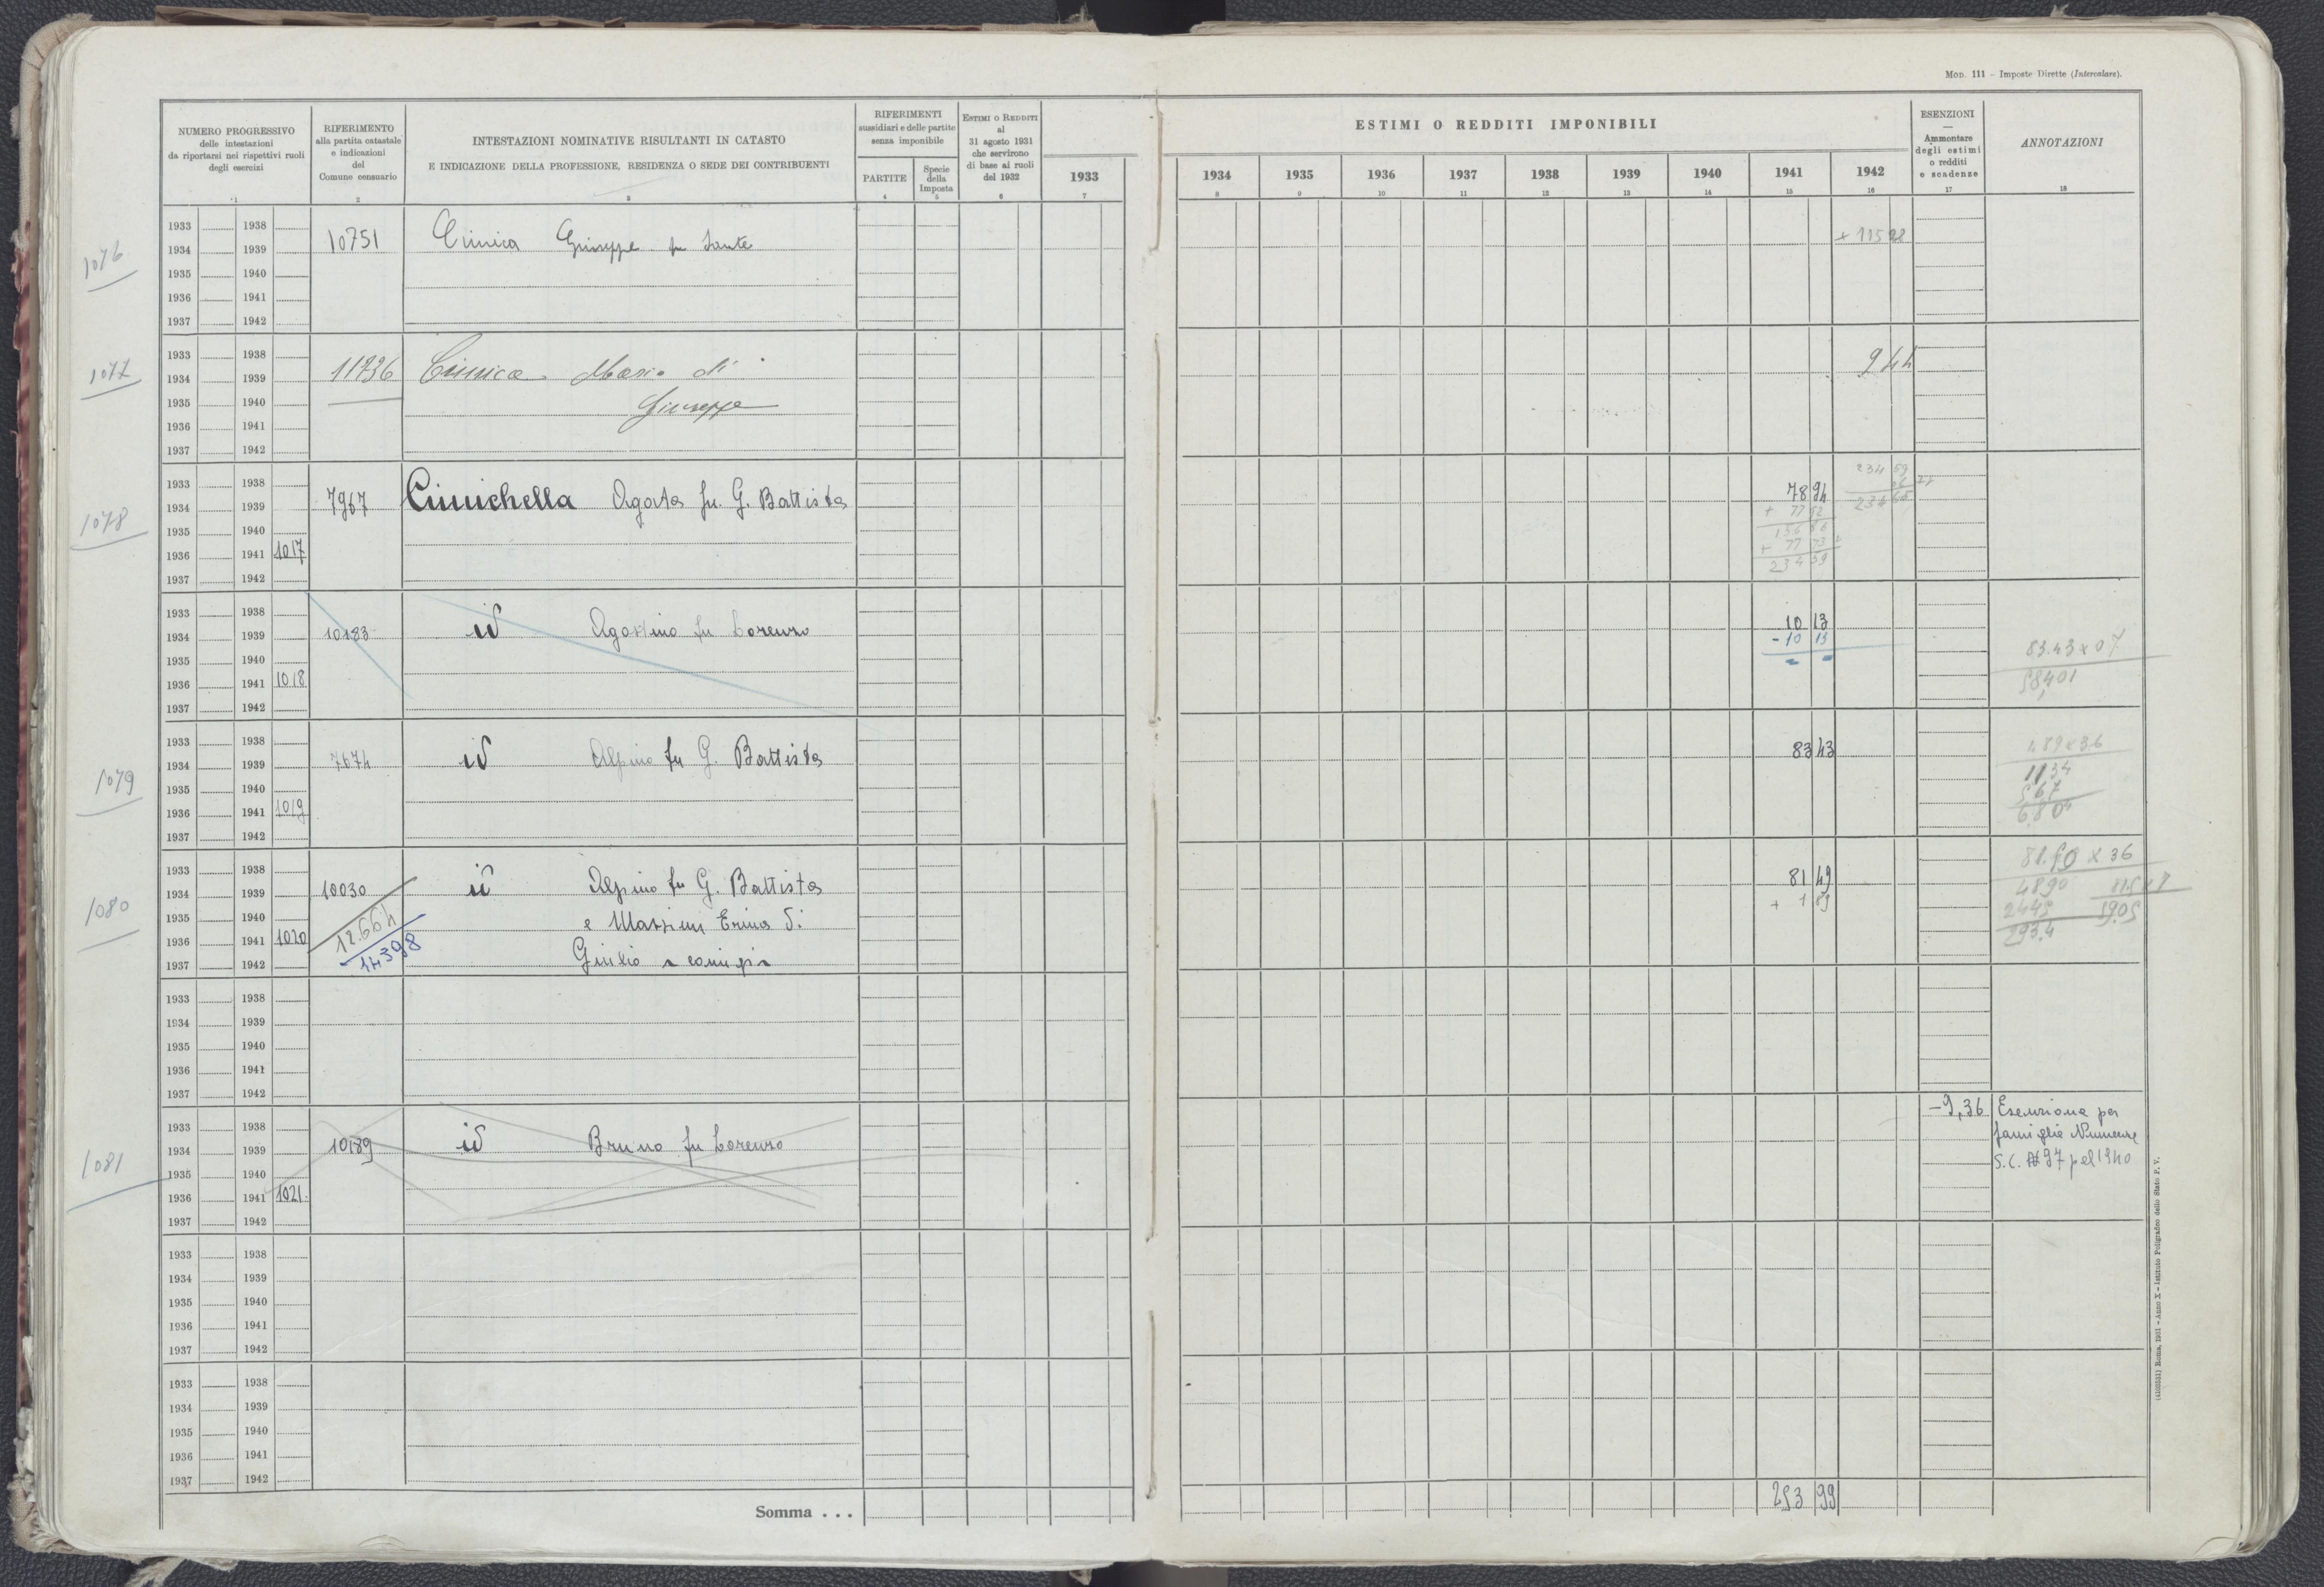 MOD. 111 - Imposte Dirette (Intercalare).
NUMERO PROGRESSIVO
delle intestazioni
da riportarsi nei rispettivi ruoli
degli esercizi
1
RIFERIMENTO
alla partita catastale
e indicazioni
del
Comune censuario
2
INTESTAZIONI NOMINATIVE RISULTANTI IN CATASTO
E INDICAZIONE DELLA PROFESSIONE, RESIDENZA O SEDE DEI CONTRIBUENTI
3
RIFERIMENTI
sussidiari e delle partite
senza imponibile
PARTITE
4
Specie
della
Imposta
5
ESTIMI O REDDITI
al
31 agosto 1931
che servirono
di base ai ruoli
del 1932
6
1933
7
ESTIMI O REDDITI IMPONIBILI
1934 1935 1936 1937 1938 1939 1940 1941 1942
8 9 10 11 12 13 14 15 16
ESENZIONI
—
Ammontare
degli estimi
o redditi
e scadenze
17
ANNOTAZIONI
18
1933 1938
1076 1934 1939 10751 Cimica Giuseppe fu Sante + 115 28
1935 1940
1936 1941
1937 1942
1933 1938
1077 1934 1939 11236 Cimica Mario di 9 44
1935 1940 Giuseppe
1936 1941
1937 1942
1933 1938 234 59
1078 1934 1939 7967 Cimichella Agata fu G. Battista 78 94
+ 77 92
1935 1940 156 86
1936 1941 1017 + 77 73
1937 1942 234 59
1933 1938 10 13
1934 1939 10183 id Agostino fu Lorenzo - 10 13
1935 1940 83.43 x 07
1936 1941 1018 58401
1937 1942
1933 1938 83 43 1.89 x 36
1079 1934 1939 7674 id Alpino fu G. Battista 1134
1935 1940 567
1936 1941 1019 6804
1937 1942
1933 1938 81.50 x 36
1080 1934 1939 10030 id Alpino fu G. Battista 81 49 4890
1935 1940 12.664 e Massimi Erina di + 1 89 2445
1936 1941 1020 14398 293.4
1937 1942 Giulio coniugi
1933 1938
1934 1939
1935 1940
1936 1941
1937 1942
1933 1938 -9,36 Esenzione per
1081 1934 1939 10189 id Bruno fu Lorenzo famiglia Numerose
1935 1940 S.C. N 97 pel 1940
1936 1941 1021
1937 1942
1933 1938
1934 1939
1935 1940
1936 1941
1937 1942
1933 1938
1934 1939
1935 1940
1936 1941
1937 1942
Somma . . . 253 99
(4103531) Roma, 1931 - Anno X - Istituto Poligrafico dello Stato P. V.